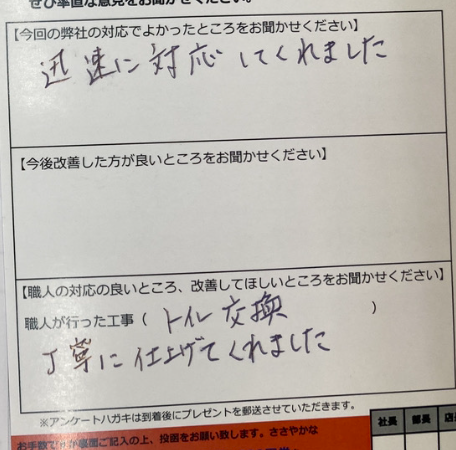 ぜひ率直な意見をお聞かせください。
【今回の弊社の対応でよかったところをお聞かせください】
迅速に対応してくれました
【今後改善した方が良いところをお聞かせください】
【職人の対応の良いところ、改善してほしいところをお聞かせください】
職人が行った工事（ トイレ交換 ）
丁寧に仕上げてくれました
※アンケートハガキは到着後にプレゼントを郵送させていただきます。
社長 部長 店
お手数ですが裏面ご記入の上、投函をお願い致します。ささやかな